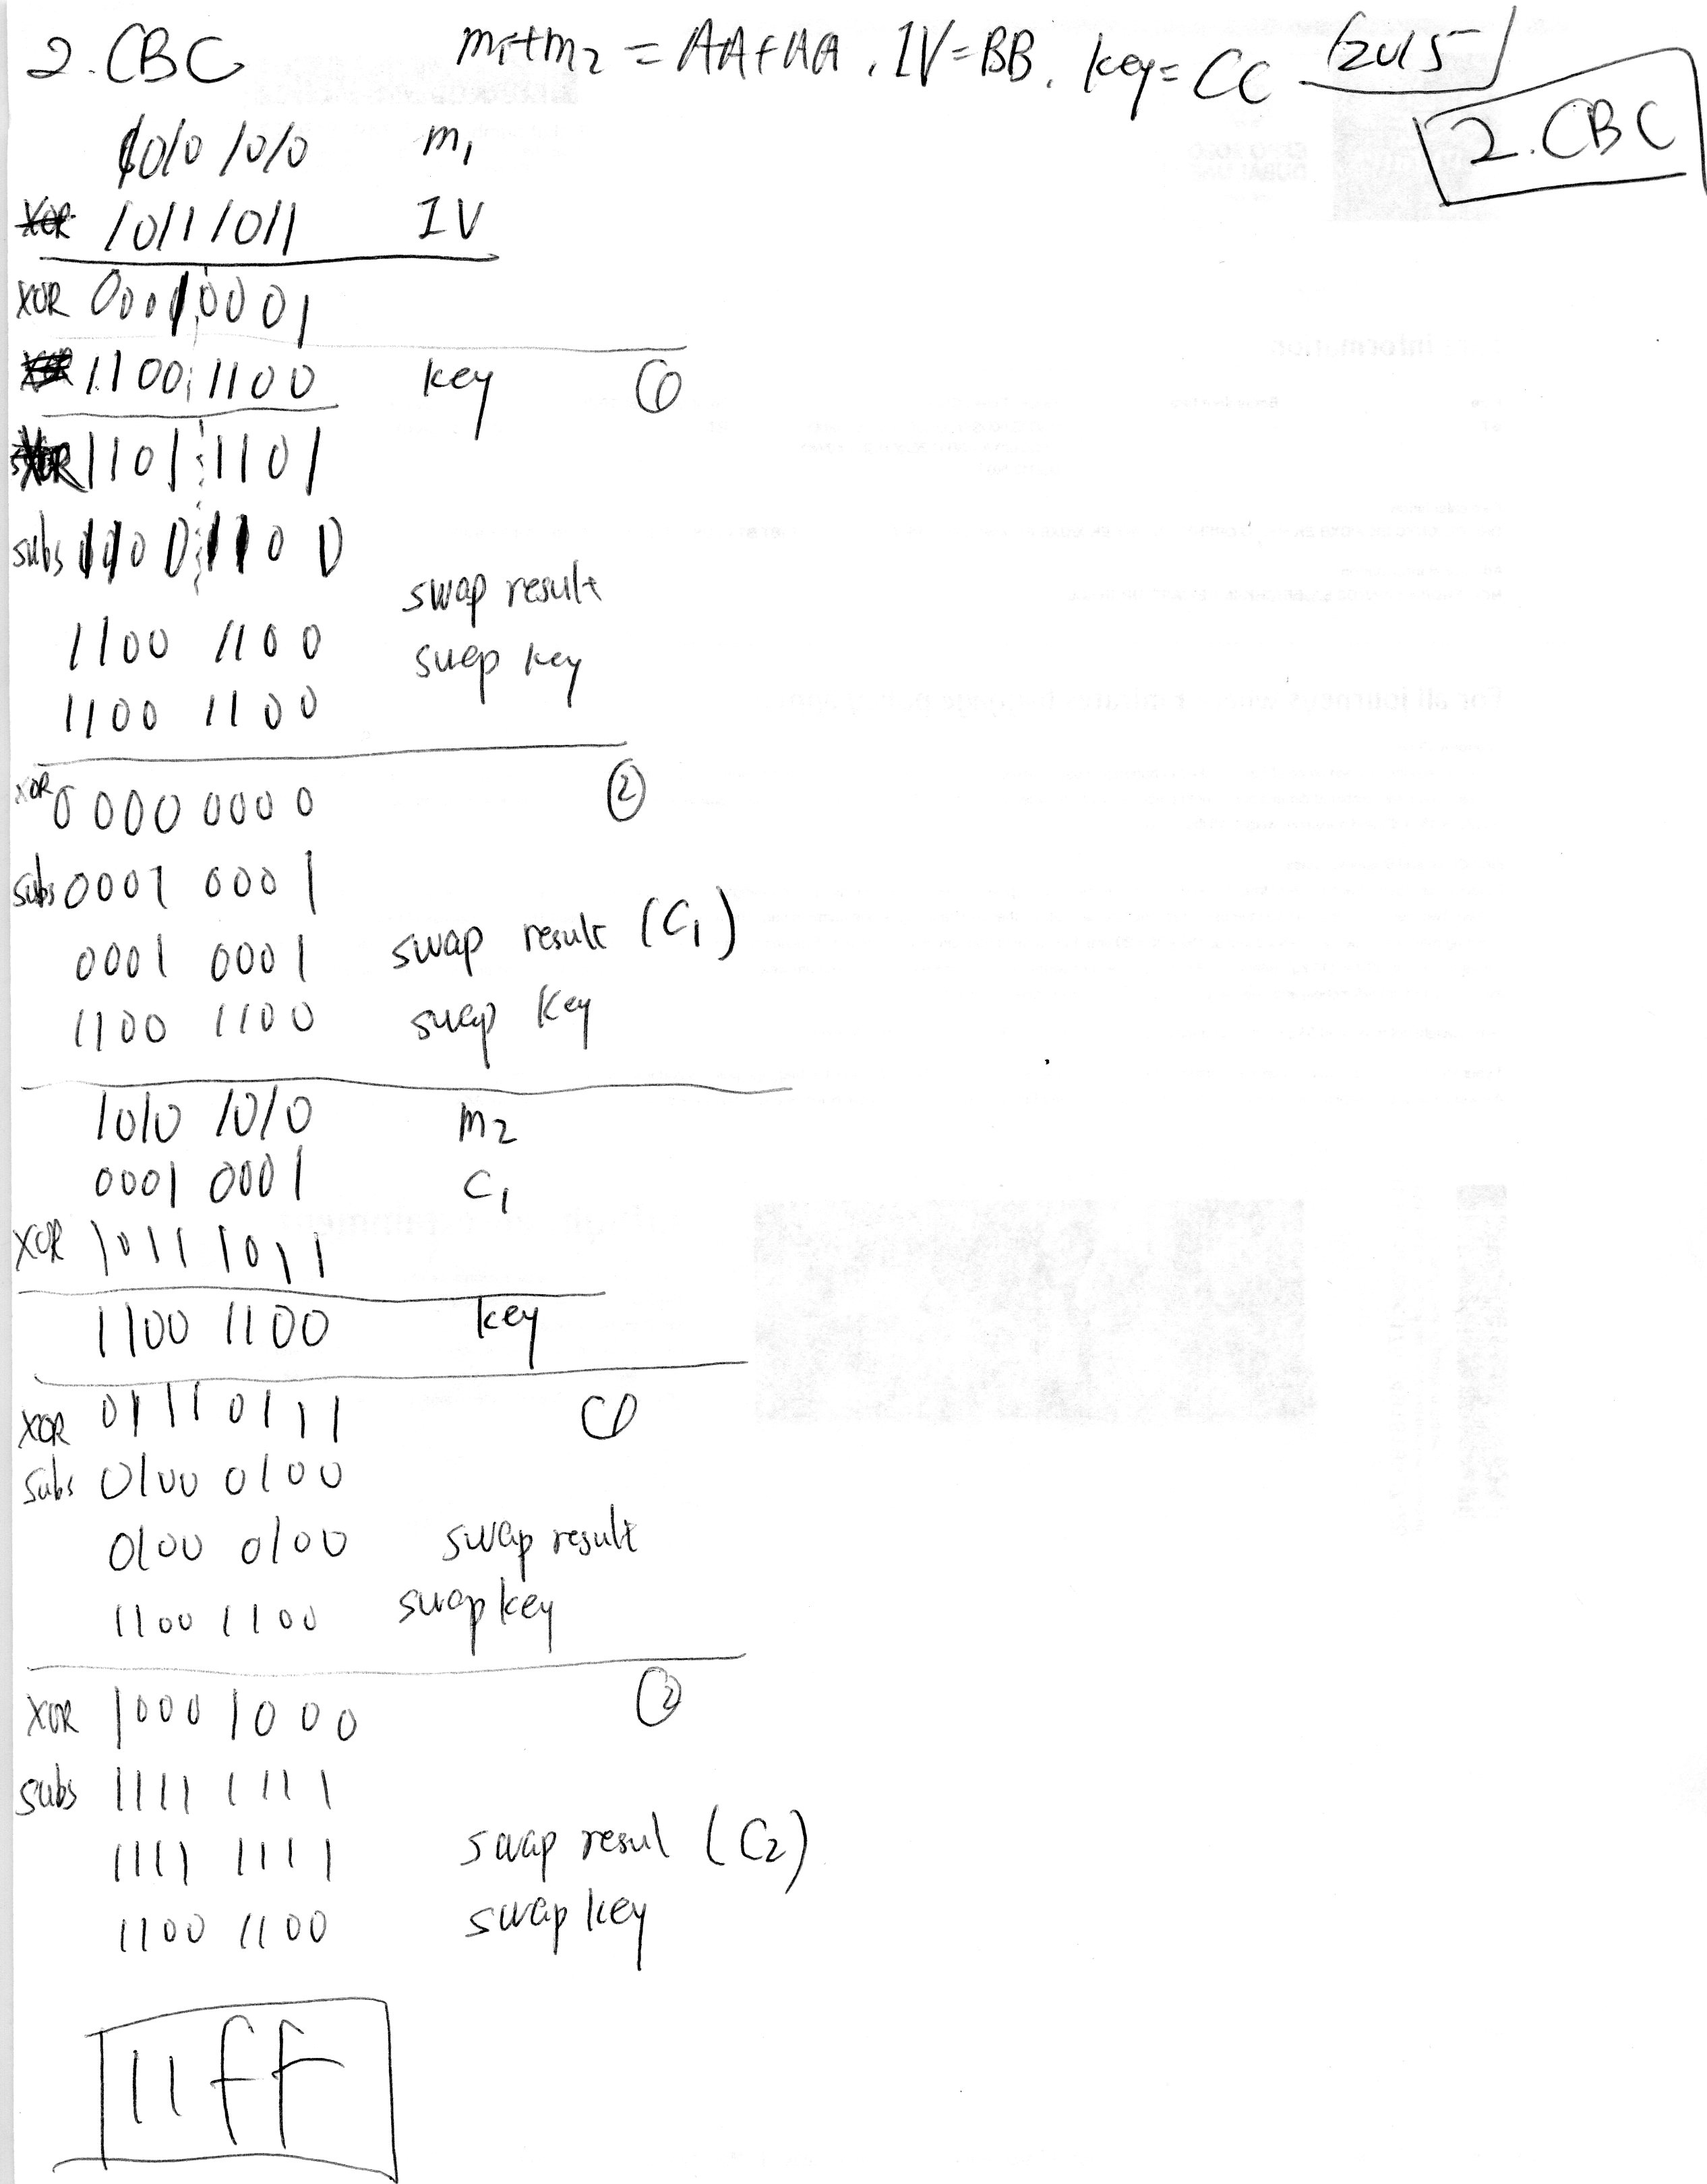 2. CBC m1+m2 = AA+AA, IV=BB. key= CC (2015)
2. CBC
1010 1010 m1
1011 1011 IV
XOR 0001 0001
1100 1100 key ①
1101 1101
subs 1100 1100
1100 1100 swap result
1100 1100 swap key
XOR 0000 0000 ②
subs 0001 0001
0001 0001 swap result (C1)
1100 1100 swap key
1010 1010 m2
0001 0001 C1
XOR 1011 1011
1100 1100 key
XOR 0111 0111 ①
subs 0100 0100
0100 0100 swap result
1100 1100 swap key
XOR 1000 1000 ②
subs 1111 1111
1111 1111 swap resul (C2)
1100 1100 swap key
11ff